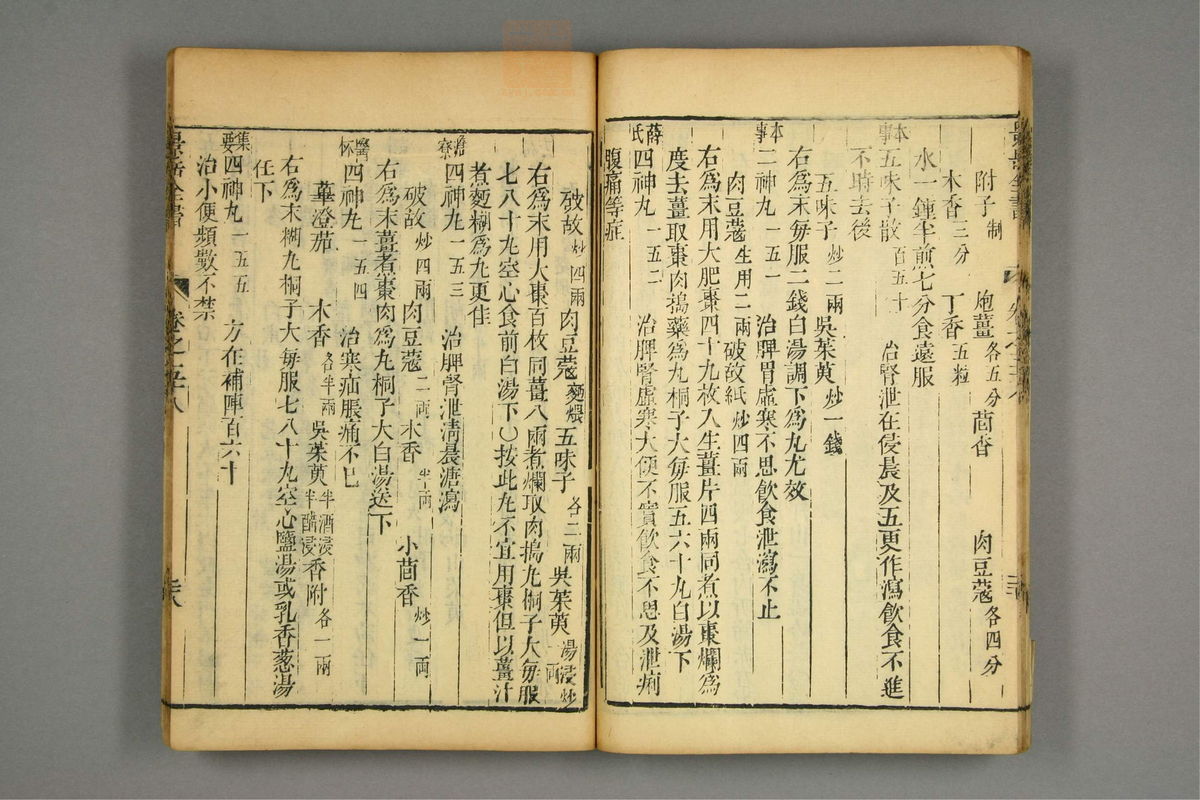 附子制 炮薑各五分 茴香 肉豆蔻各四分
木香三分 丁香五粒
水一鍾半煎七分食遠服
本事五味子散百五十 治腎泄在侵晨及五更作瀉飲食不進
不時去後
五味子炒二兩吳茱萸炒一錢
右為末每服二錢白湯調下為丸尤效
本事二神丸一五一 治脾胃虛寒不思飲食泄瀉不止
肉豆蔻生用二兩破故紙炒四兩
右為末用大肥棗四十九枚入生薑片四兩同煮以棗爛為
度去薑取棗肉搗藥為丸桐子大每服五六十丸白湯下
薛氏四神丸一五二 治脾腎虛寒大便不實飲食不思及泄痢
腹痛等症
破故炒四兩肉豆蔻麵煨五味子各二兩吳茱萸湯浸炒一兩
右為末用大棗百枚同薑八兩煮爛取肉搗丸桐子大每服
七八十丸空心食前白湯下○按此丸不宜用棗但以薑汁
煮麵糊為丸更佳
澹寮四神丸一五三 治脾腎泄清晨溏瀉
破故炒四兩肉豆蔻二兩木香半兩 小茴香炒一兩
右為末薑煮棗肉為丸桐子大白湯送下
醫林四神丸一五四 治寒疝脹痛不已
蓽澄茄 木香各半兩吳茱萸半酒浸半醋浸香附各一兩
右為末糊丸桐子大每服七八十丸空心鹽湯或乳香蔥湯
任下
集要四神丸一五五 方在補陣百六十
治小便頻數不禁
卷之五八